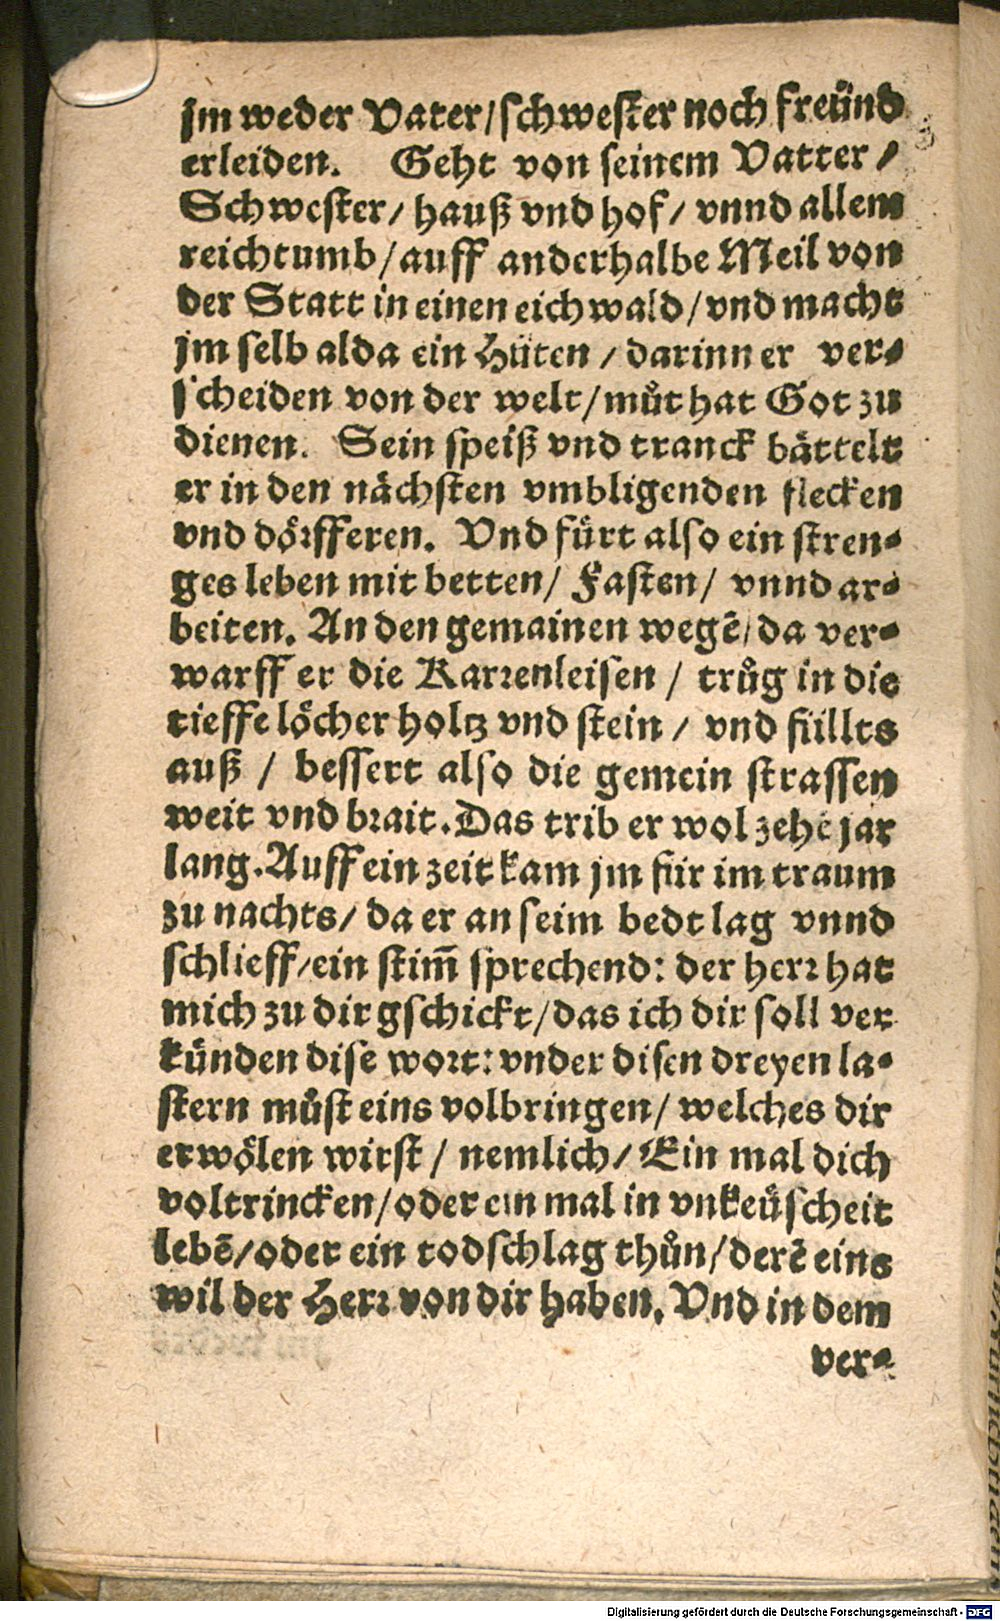 jm weder Vater/schwester noch freünd
erleiden. Geht von seinem Vatter/
Schwester/ hauß vnd hof/ vnnd allem
reichtumb/auff anderhalbe Meil von
der Statt in einen eichwald/vnd macht
jm selb alda ein Hüten/darinn er ver-
scheiden von der welt/můt hat Got zu
dienen. Sein speiß vnd tranck bättelt
er in den nächsten vmbligenden flecken
vnd dörfferen. Vnd fürt also ein stren-
ges leben mit betten/ Fasten/ vnnd ar-
beiten. An den gemainen wegē/da ver-
warff er die Karrenleisen/ trůg in die
tieffe löcher holtz vnd stein/ vnd füllts
auß/ bessert also die gemein strassen
weit vnd brait. Das trib er wol zehē jar
lang. Auff ein zeit kam jm für im traum
zu nachts/da er an seim bedt lag vnnd
schlieff/ein stim̄ sprechend: der herr hat
mich zu dir gschickt/das ich dir soll ver
künden dise wort: vnder disen dreyen la-
stern můst eins volbringen/ welches dir
erwölen wirst/ nemlich/ Ein mal dich
voltrincken/oder ein mal in vnkeüscheit
lebē/oder ein todschlag thůn/derē eins
wil der Herr von dir haben. Vnd in dem
ver-
Digitalisierung gefördert durch die Deutsche Forschungsgemeinschaft - DFG